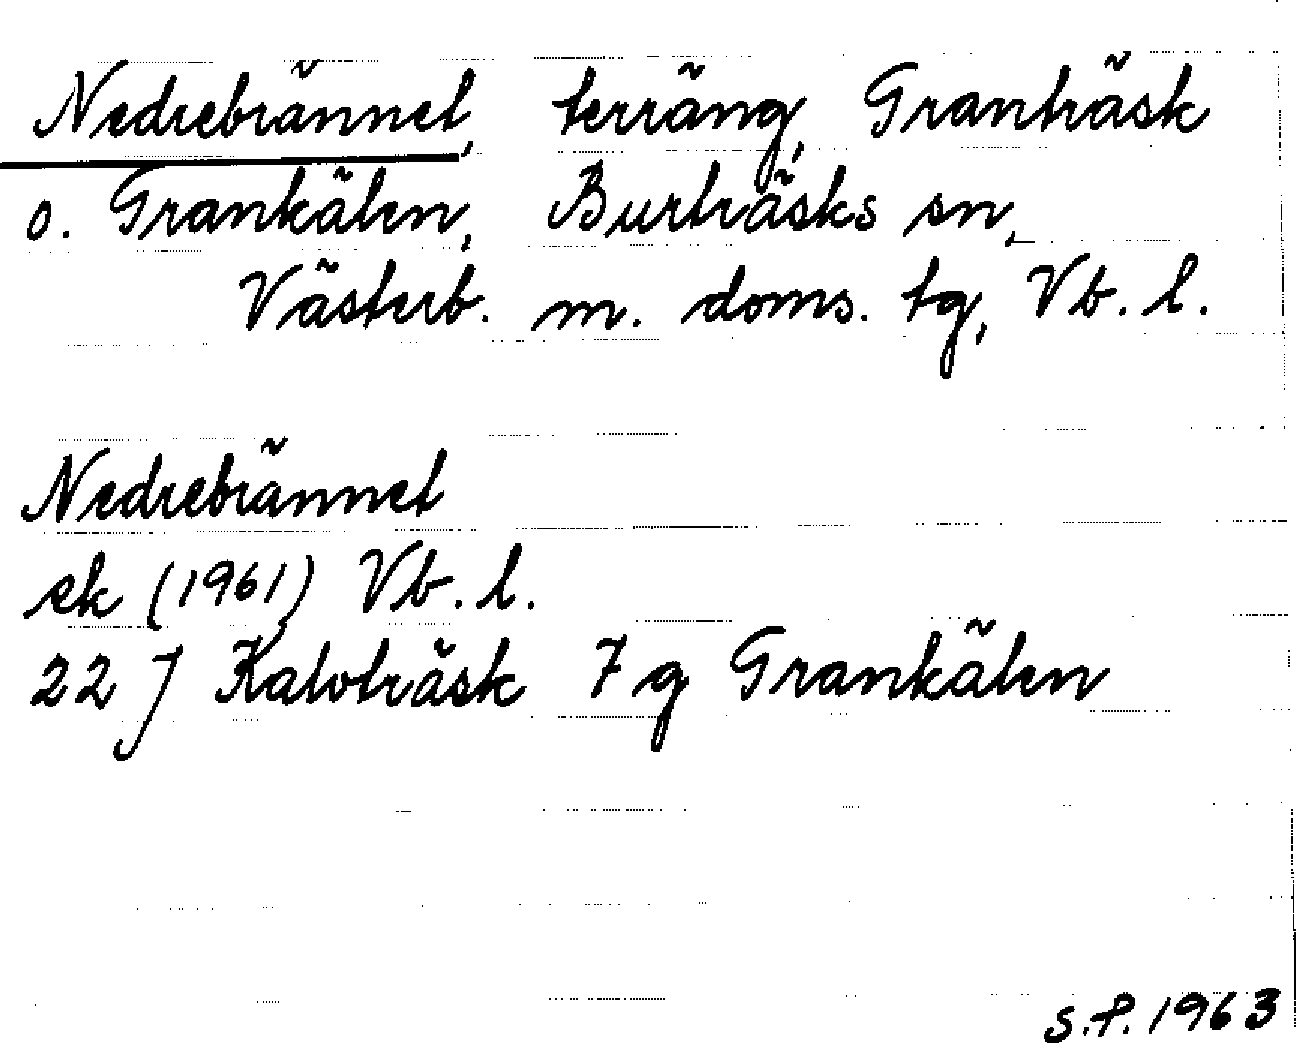 Nedrebrännet, terräng, Granträsk
o. Grankälen, Burträsks sn,
Västerb. m. doms. tg, Vb. l.
Nedrebrännet
ek (1961) Vb. l.
22 J Kalvträsk 7 g Grankälen
S.P. 1963